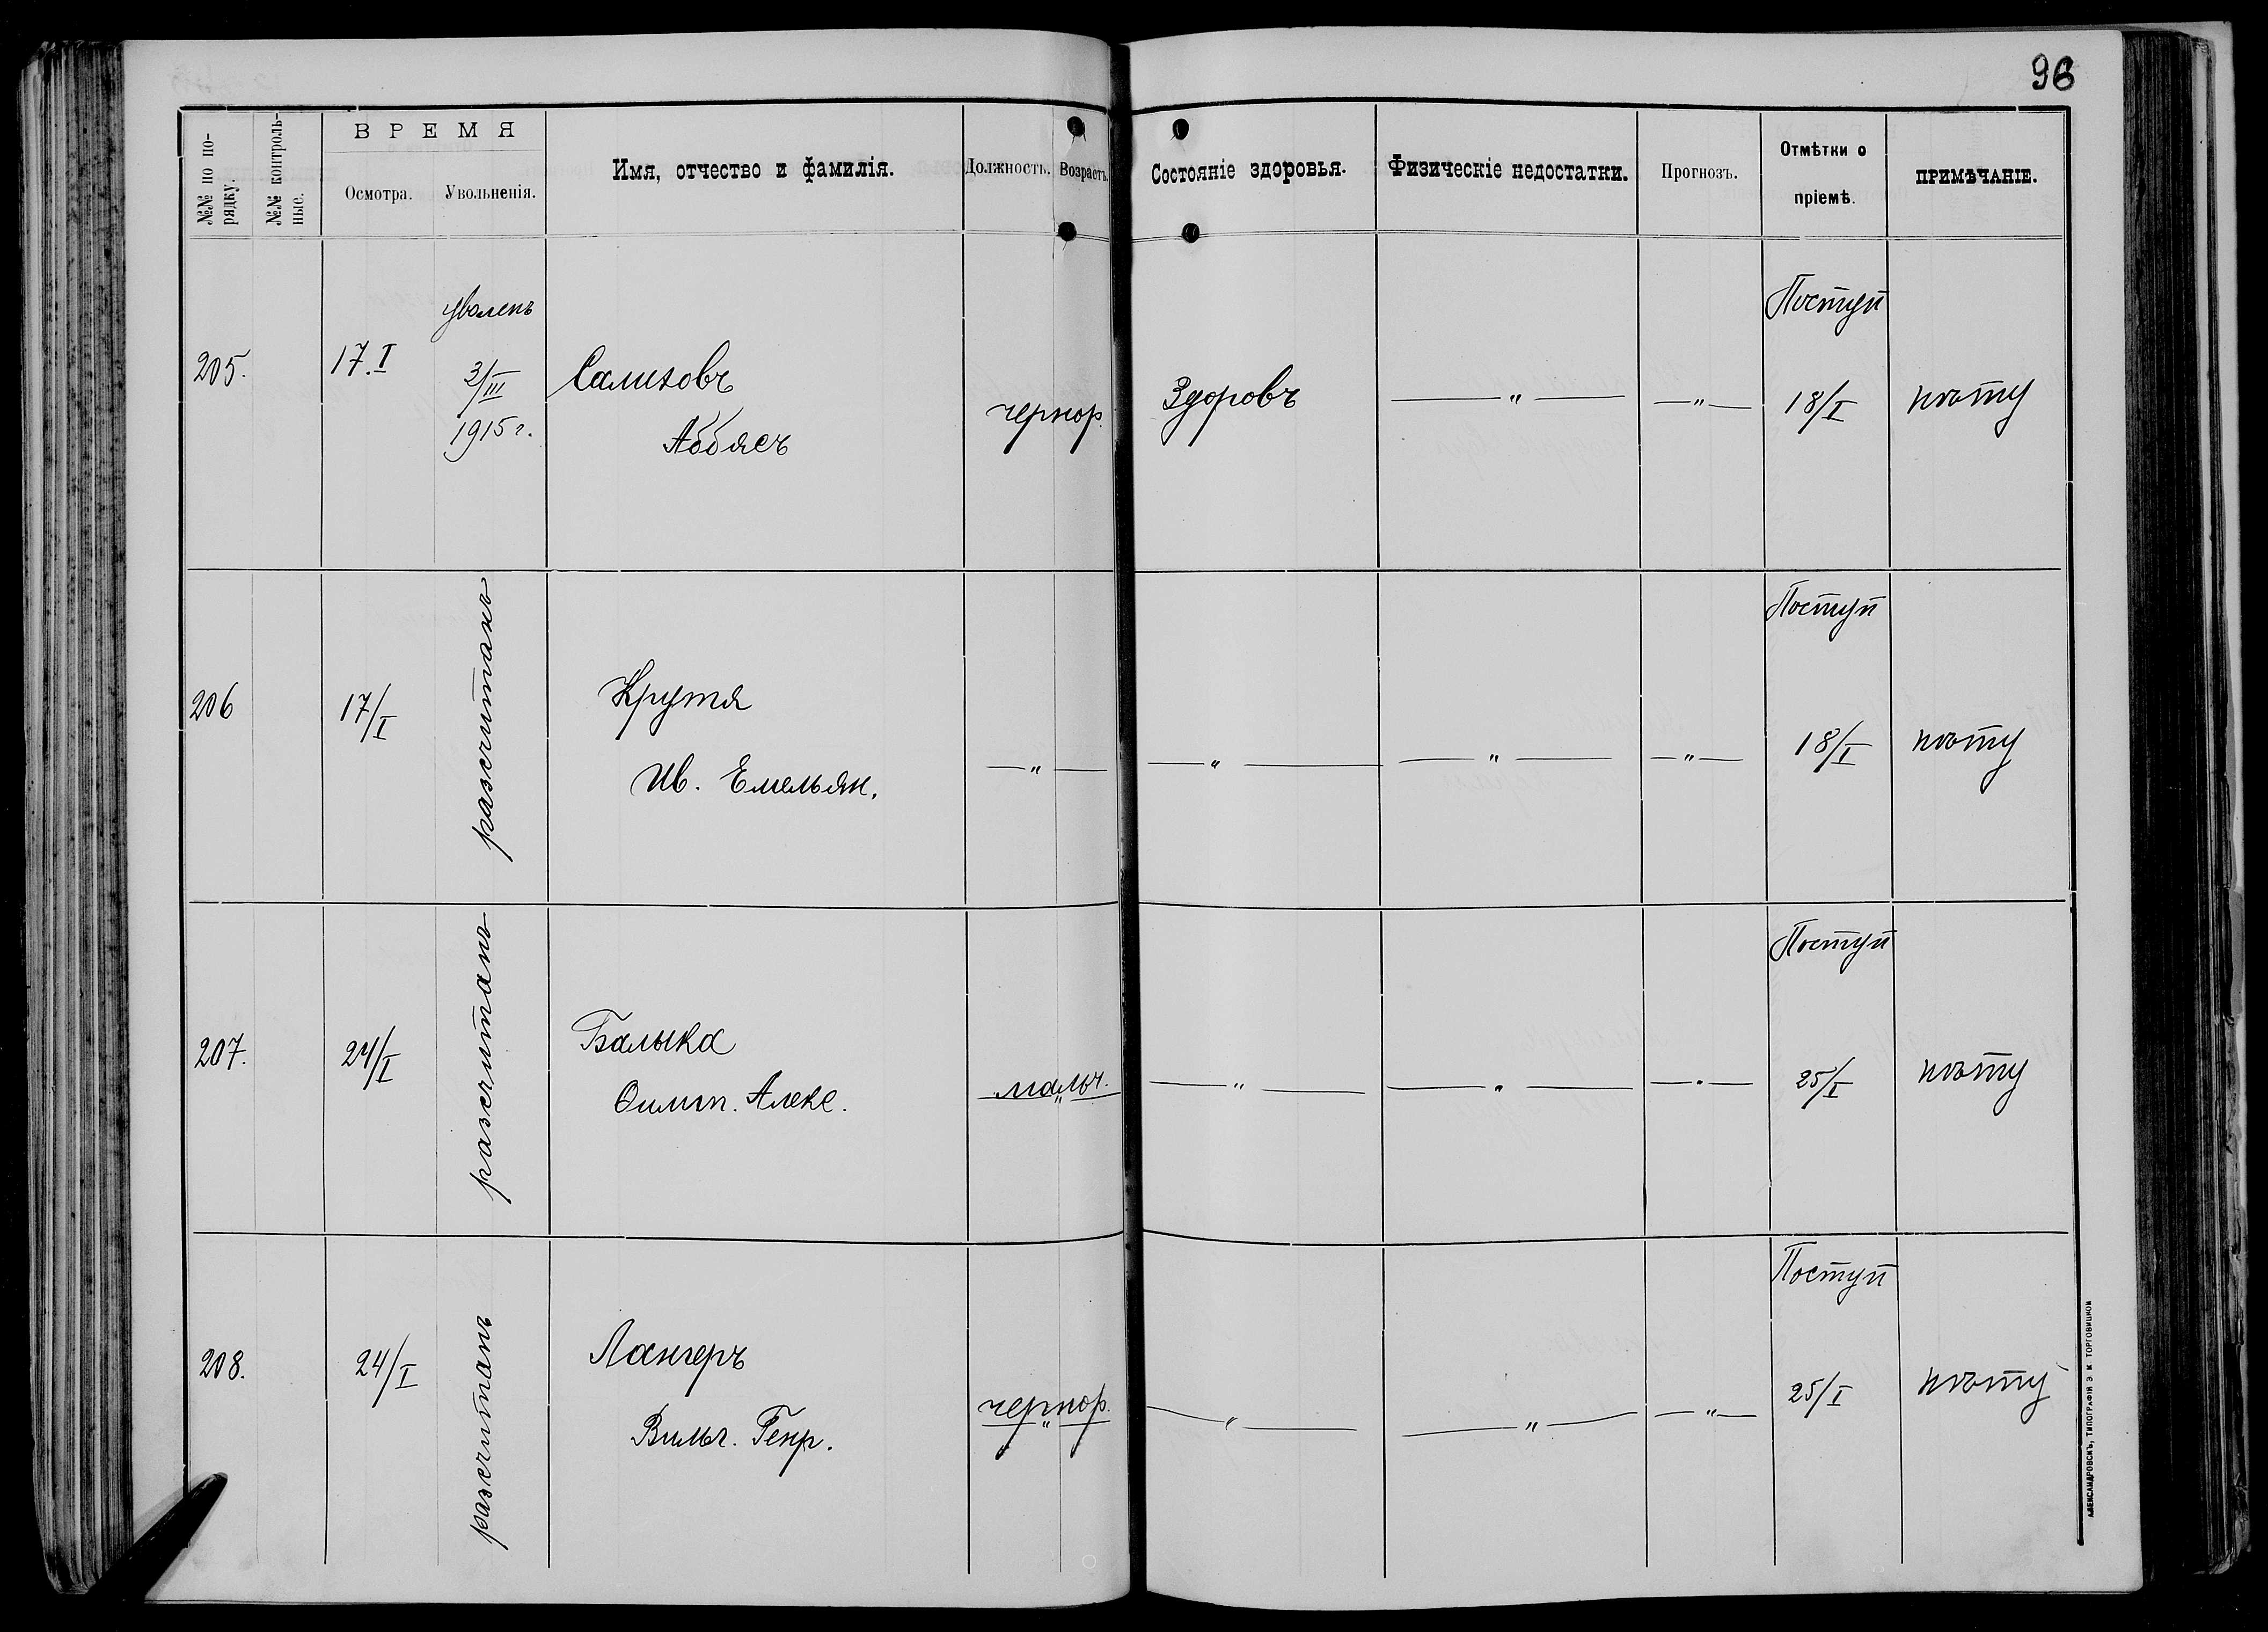 96
№№ по по-
рядку.
№№ контроль-
ные.
ВРЕМЯ
Осмотра.
Увольненія.
Имя, отчество и фамилія.
Должность.
Возрастъ.
Состояніе здоровья.
Физическіе недостатки.
Прогнозъ.
Отмѣтки о
пріемѣ.
ПРИМѢЧАНІЕ.
205.
17.I
уволенъ
3/III
1915 г.
Салиховъ
Аббясъ
чернор.
Здоровъ
— " —
— " —
Поступ
18/I
206
17/I
разсчитанъ
Крутя
Ив. Емельян.
— " —
— " —
— " —
— " —
Поступ
18/I
207.
24/I
разсчитанъ
Балыка
Алекс.
мальч.
— " —
— " —
— " —
Поступ
25/I
208.
24/I
разсчитанъ
Лангеръ
Вильг. Генр.
чернор.
— " —
— " —
— " —
Поступ
25/I
АЛЕКСАНДРОВСКЪ, ТИПОГРАФІЯ Э. М. ТОРГОВИЦКОЙ